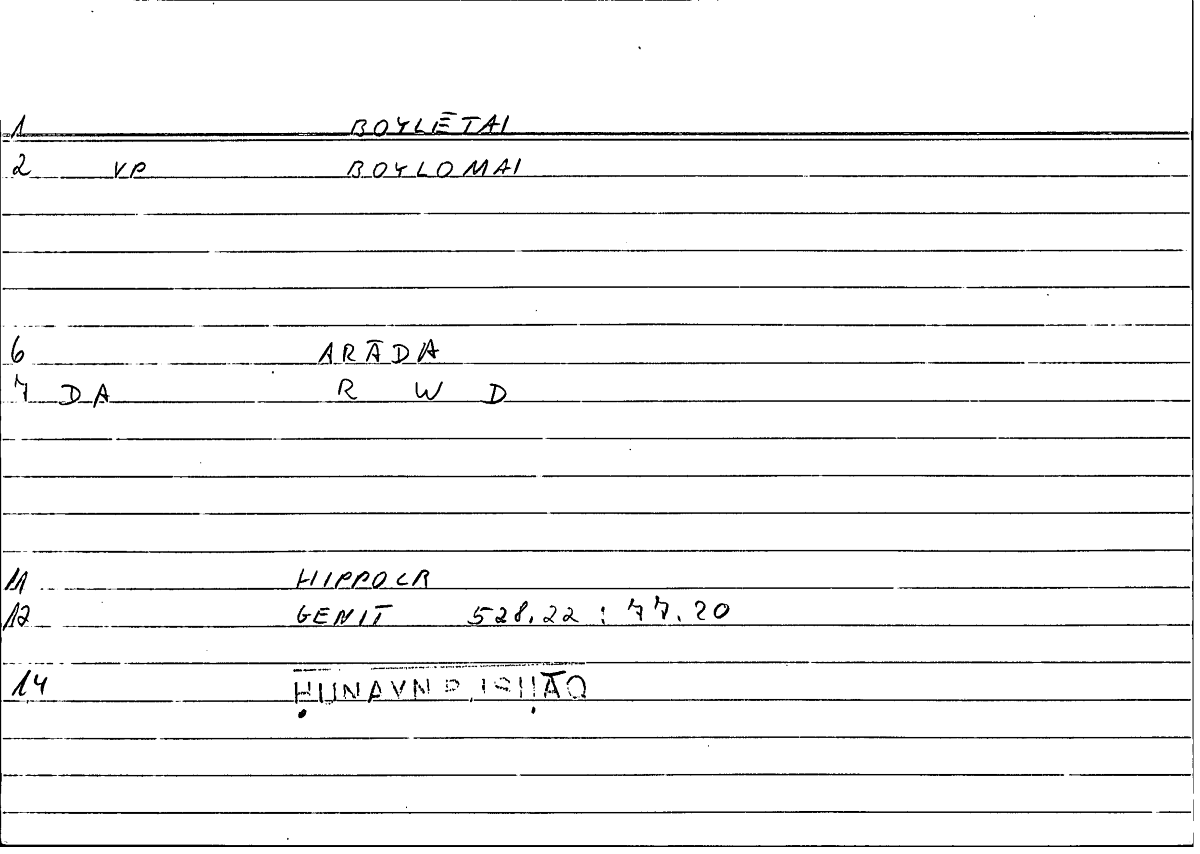 1 BOYLĒTAI
2 VP BOYLOMAI
6 ARĀDA
7 DA R W D
11 HIPPOCR
12 GENIT 528.22 : 77.20
14 ḤUNAYN B. ISḤĀQ